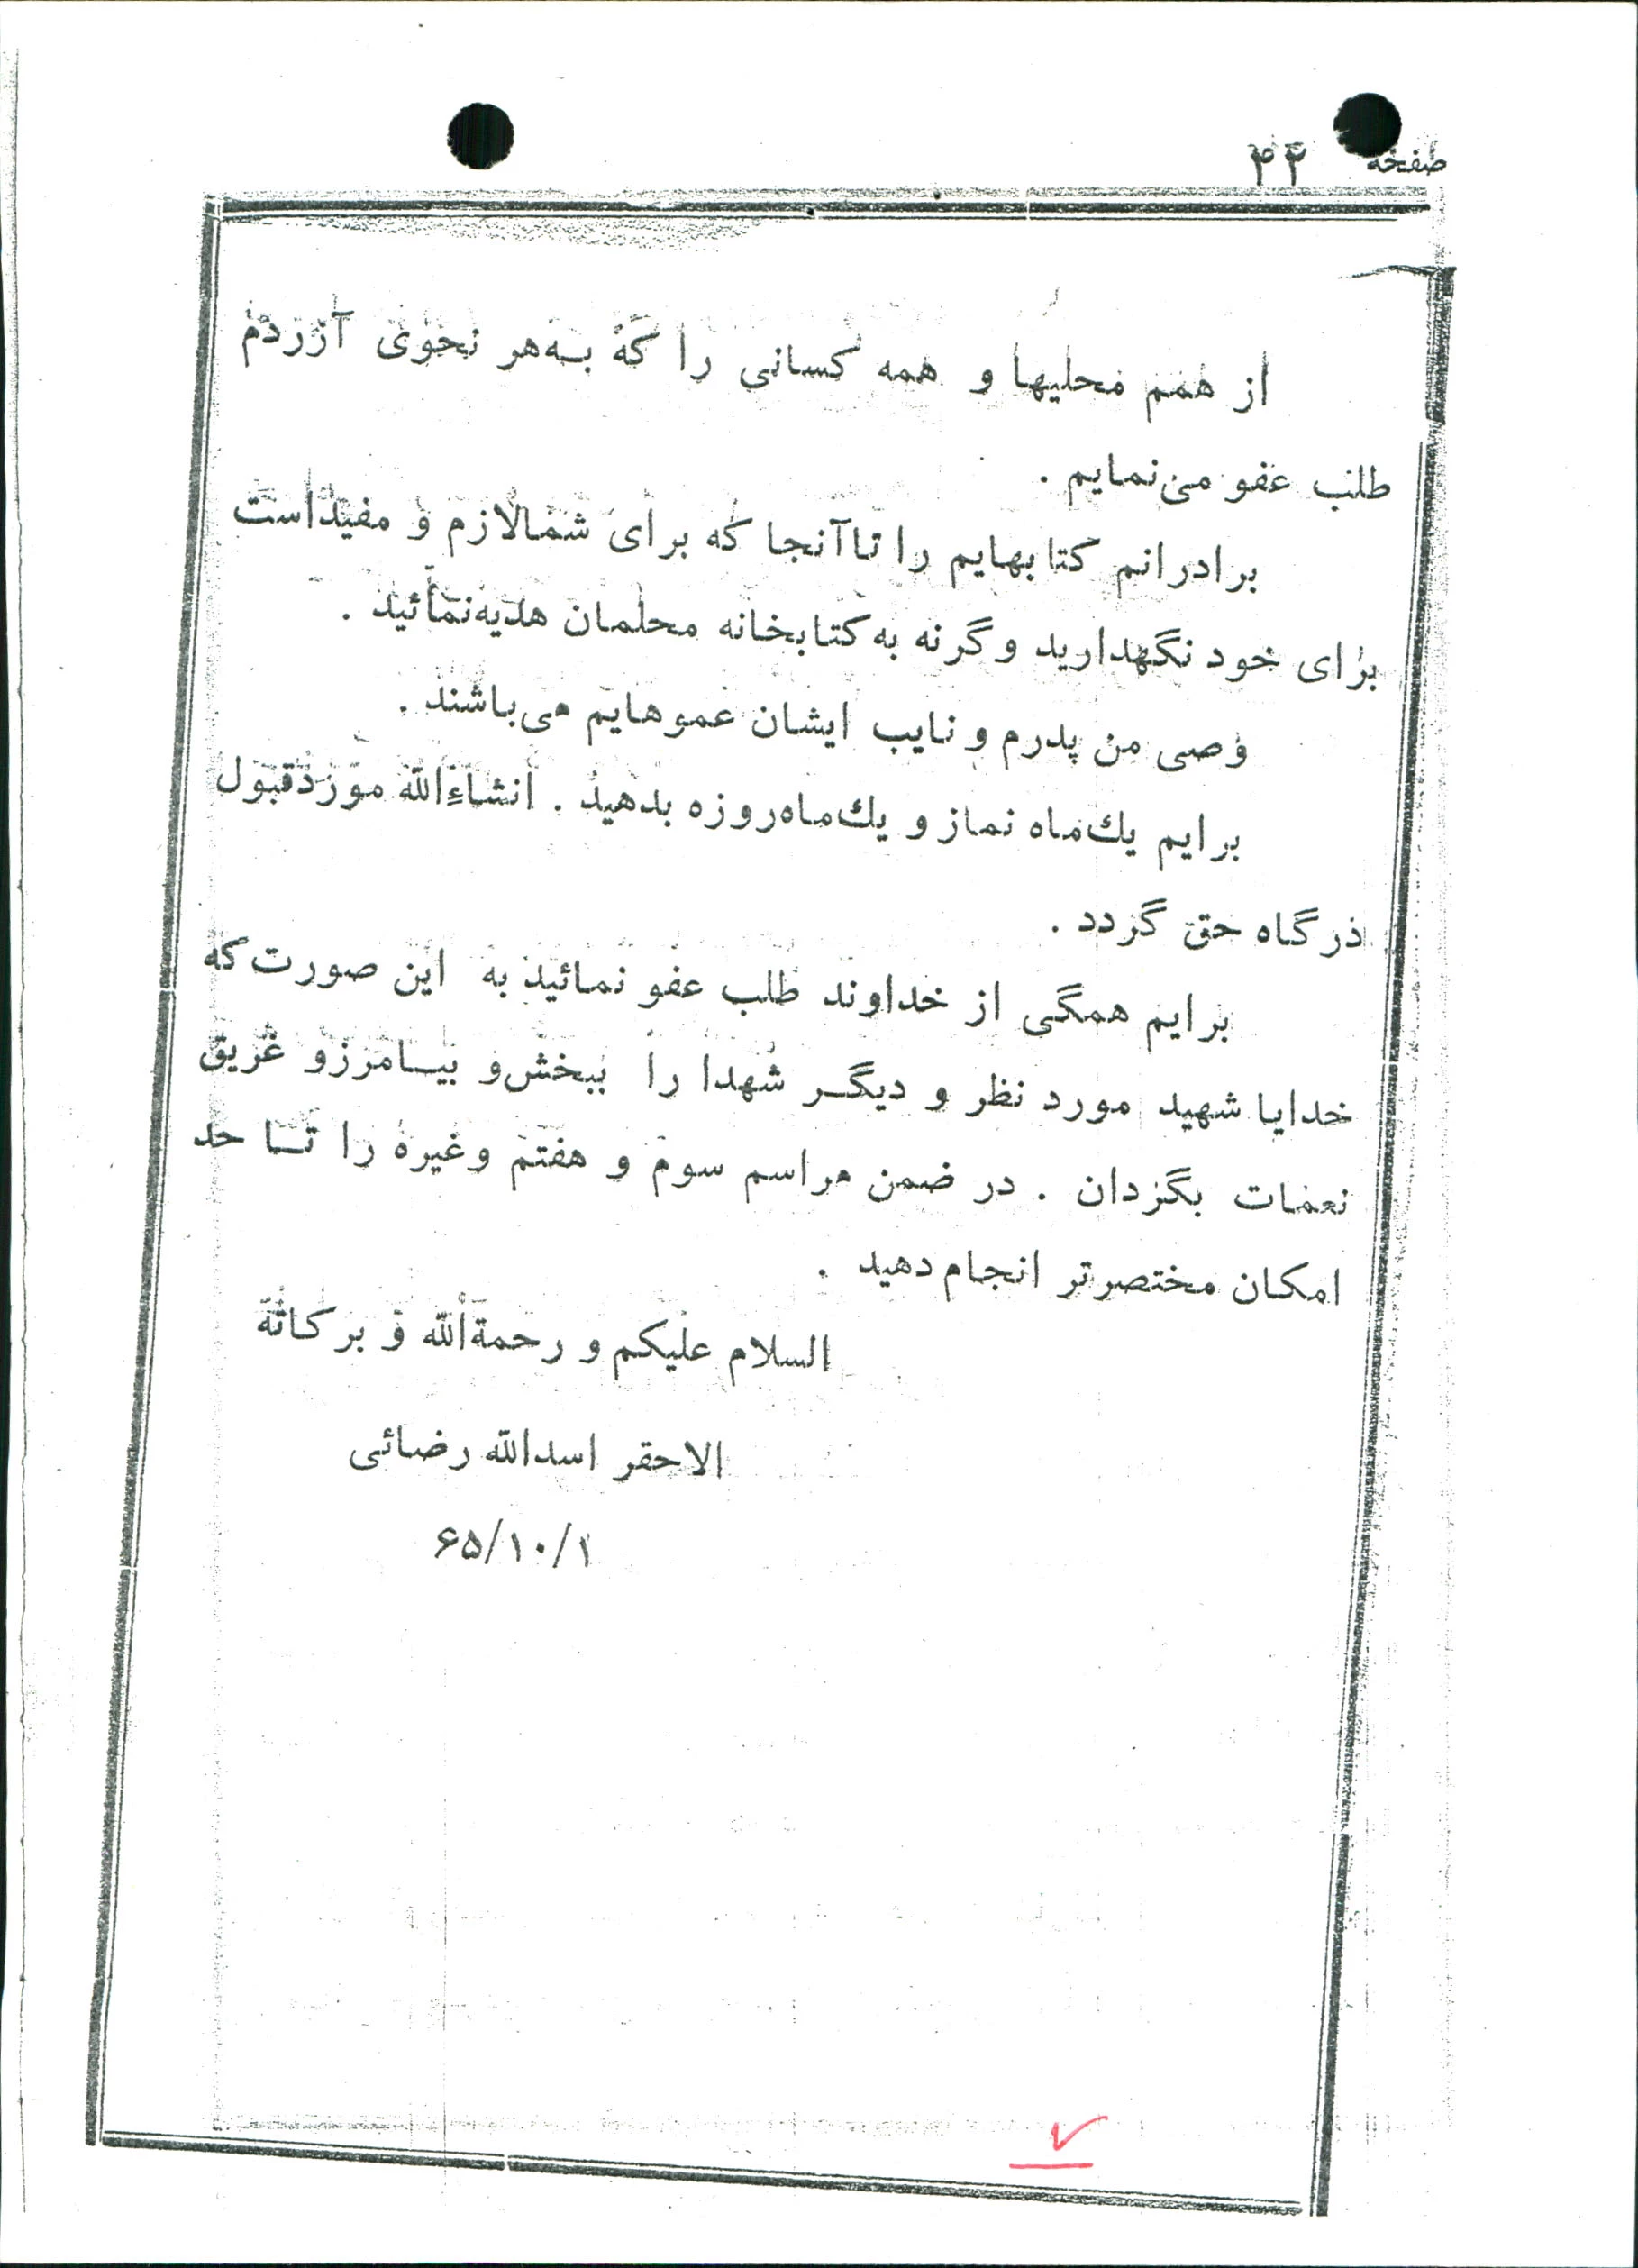 صفحه ۴۲
از همم محلیها و همه کسانی را که به‌هر نحوی آزردم
طلب عفو می‌نمایم .
برادرانم کتابهایم را تاآنجا که برای شمالازم و مفیداست
برای خود نگهدارید وگرنه به کتابخانه محلمان هدیه‌نمائید .
وصی من پدرم و نایب ایشان عموهایم می‌باشند .
برایم یك‌ماه نماز و یك‌ماه‌روزه بدهید . انشاءالله موردقبول
درگاه حق گردد .
برایم همگی از خداوند طلب عفو نمائید به این صورت‌که
خدایا شهید مورد نظر و دیگر شهدا را ببخش‌و بیامرزو غریق
نعمات بگردان . در ضمن مراسم سوم و هفتم وغیره را تا حد
امکان مختصرتر انجام دهید .
السلام علیکم و رحمةالله و برکاته
الاحقر اسدالله رضائی
۶۵/۱۰/۱